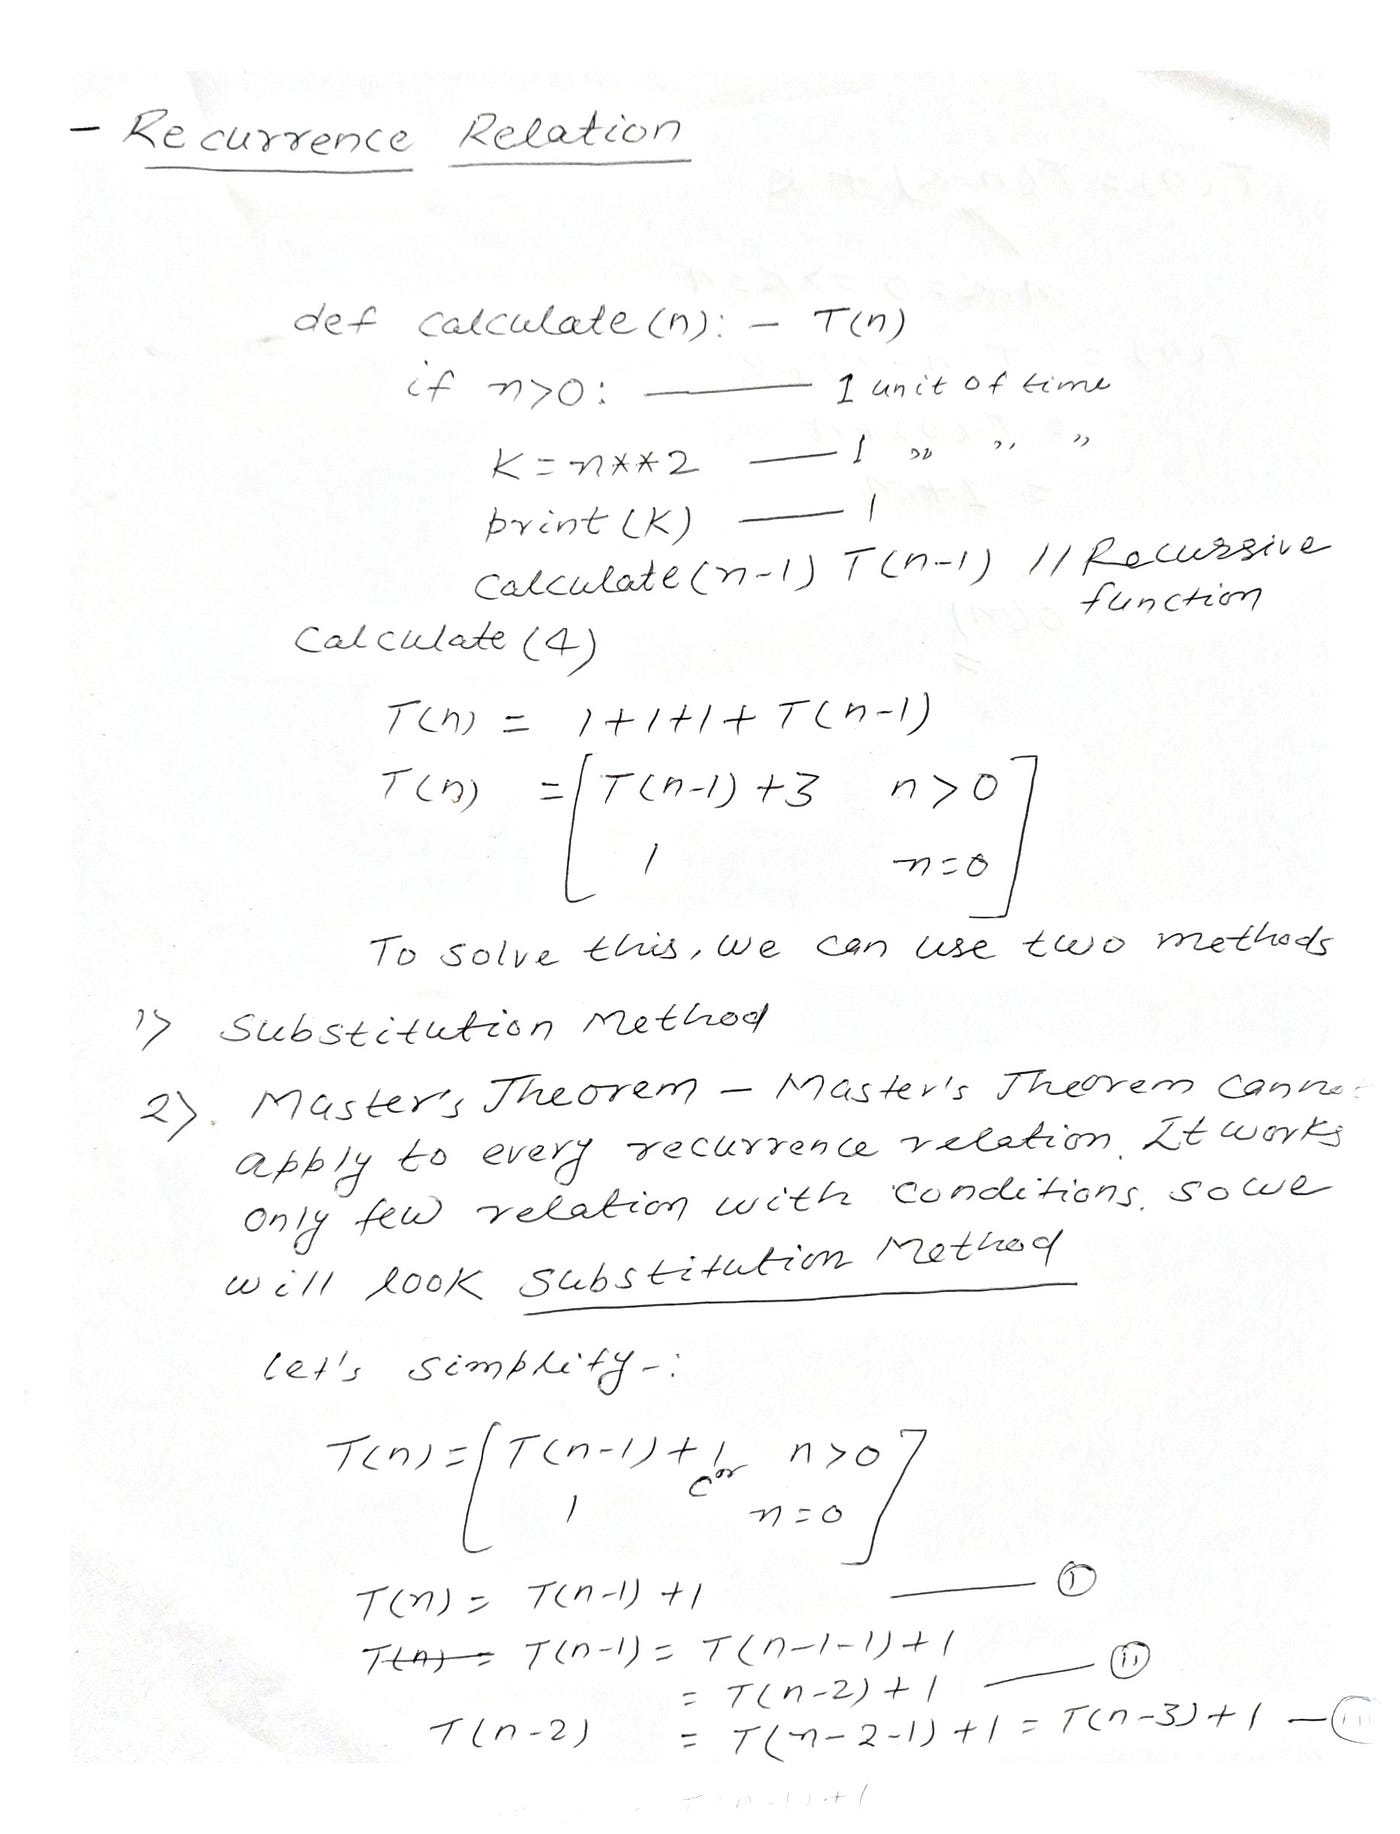 - Recurrence Relation
def calculate(n): - T(n)
if n>0: —— 1 unit of time
K=n**2 —— 1 ,, ,, ,,
print(K) —— 1
calculate(n-1) T(n-1) // Recursive
function
Calculate(4)
T(n) = 1+1+1+T(n-1)
T(n) = [T(n-1)+3 n>0
1 n=0]
To solve this, we can use two methods
1> Substitution Method
2>. Master's Theorem - Master's Theorem canno
apply to every recurrence relation. It works
only few relation with conditions. so we
will look Substitution Method
let's simplify-:
T(n)=[T(n-1)+1 or c n>0
1 n=0]
T(n)= T(n-1)+1 —— (i)
T(n)= T(n-1)= T(n-1-1)+1
= T(n-2)+1 —— (ii)
T(n-2) = T(n-2-1)+1 = T(n-3)+1 — (iii